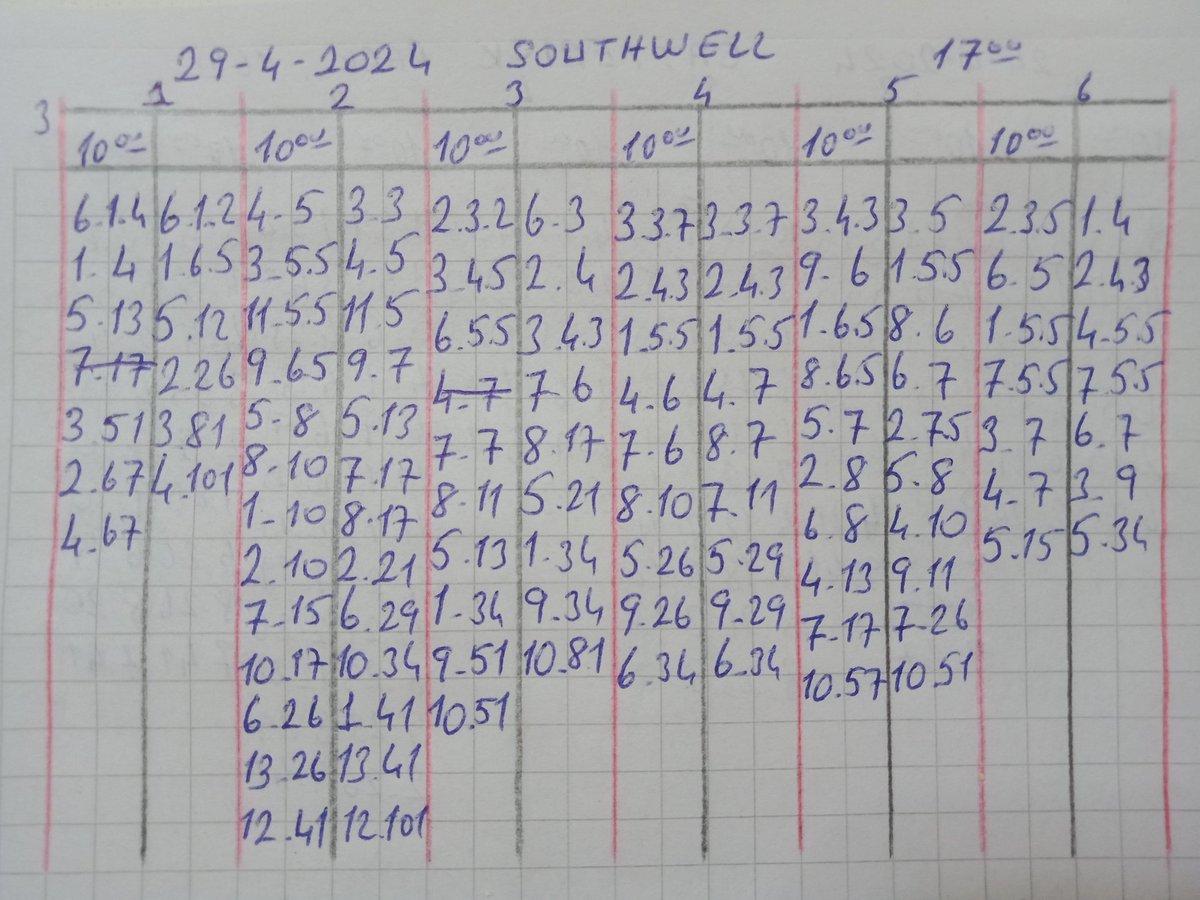 29-4-2024 SOUTHWELL 17 00
3 1 2 3 4 5 6
10 00 10 00 10 00 10 00 10 00 10 00
6.1.4 6.1.2 4.5 3.3 2.3.2 6.3 3.3.7 3.3.7 3.4.3 3.5 2.3.5 1.4
1.4 1.6.5 3.5.5 4.5 3.4.5 2.4 2.4.3 2.4.3 9.6 1.5.5 6.5 2.4.3
5.13 5.12 11.5.5 11.5 6.5.5 3.4.3 1.5.5 1.5.5 1.6.5 8.6 1.5.5 4.5.5
7.17 2.26 9.65 9.7 4.7 7.6 4.6 4.7 8.6.5 6.7 7.5.5 7.5.5
3.51 3.81 5.8 5.13 7.7 8.17 7.6 8.7 5.7 2.75 3.7 6.7
2.67 4.101 8.10 7.17 8.11 5.21 8.10 7.11 2.8 5.8 4.7 3.9
4.67 1.10 8.17 5.13 1.34 5.26 5.29 6.8 4.10 5.15 5.34
2.10 2.21 1.34 9.34 9.26 9.29 4.13 9.11
7.15 6.29 9.51 10.81 6.34 6.34 7.17 7.26
10.17 10.34 10.51 10.57 10.51
6.26 1.41
13.26 13.41
12.41 12.101